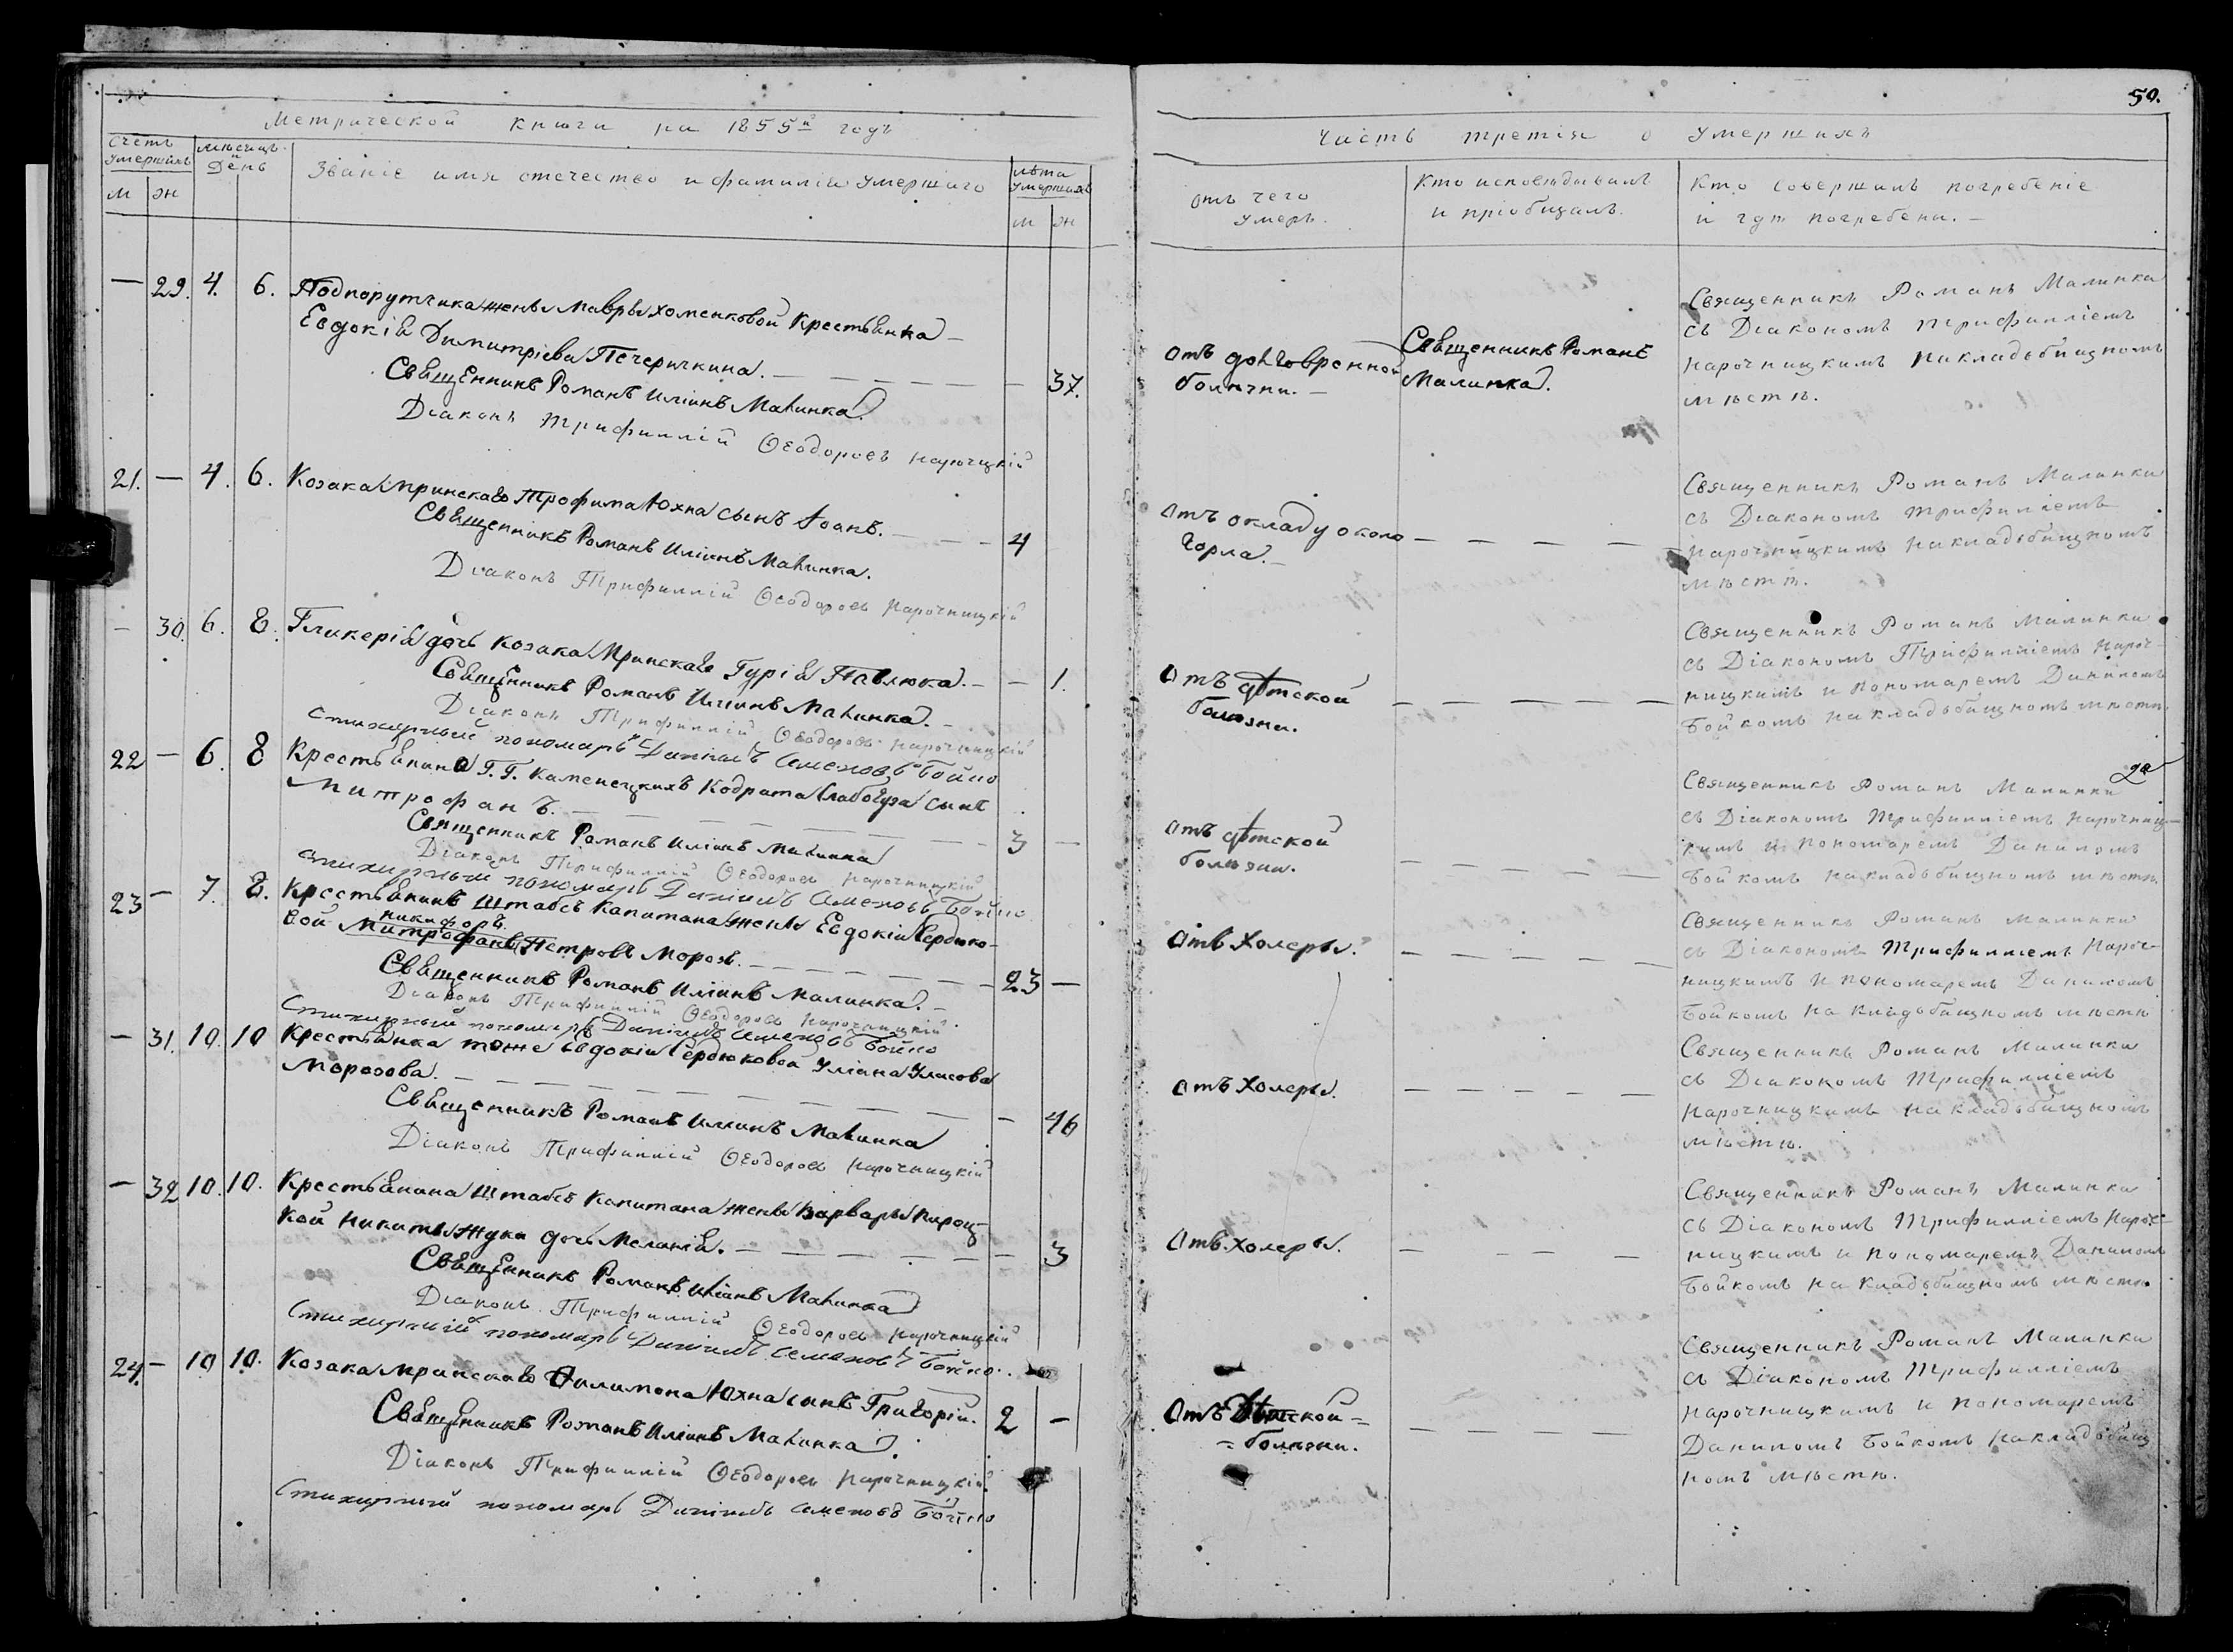 Метрической книги на 1855й годъ
Счетъ умершихъ
мѣсяцъ и день
Званіе имя отечество и фамилія умершаго
лѣта умершихъ
м ж
м ж
— 29. 4. 6. Подпорутчика жены Мавры Хоменковой крестьянка
Евдокія Димитріева Печеричкина. — — — — — 37.
Священникъ Романъ Иліинъ Малинка
Діаконъ Трифиллій Ѳеодоровъ Нарочицкій
21. — 4. 6. Козака Мринскаго Трофима Юхна сынъ Іоанъ. — — — 4
Священникъ Романъ Иліинъ Малинка.
Діаконъ Трифиллій Ѳеодоровъ Нарочницкій
— 30. 6. 8. Гликерія дочь козака Мринскаго Гурія Павлюка. — — 1.
Священникъ Романъ Иліинъ Малинка. —
Діаконъ Трифиллій Ѳеодоровъ Нарочницкій
Стихарный пономарь Даніилъ Семеновъ Бойко
22 — 6. 8 Крестьянина Г. Г. Каменецкихъ Кодрата Слабогуза сынъ
Митрофанъ. — — — — — — — 3 —
Священникъ Романъ Иліинъ Малинка
Діаконъ Трифиллій Ѳеодоровъ Нарочницкій
Стихарный пономарь Даніилъ Семеновъ Бойко
23 — 7. 8. Крестьянинъ Штабсъ Капитана жены Евдокіи Сердюко-
никифоръ
вой Митрофанъ Петровъ Морозъ. — — — — — 23 —
Священникъ Романъ Иліинъ Малинка. —
Діаконъ Трифиллій Ѳеодоровъ Нарочницкій.
Стихарный пономарь Даніилъ Семеновъ Бойко
— 31. 10. 10 Крестьянка тоже Евдокіи Сердюковой Уліана Уласова
Морозова. — — — — — — — — 46
Священникъ Романъ Иліинъ Малинка
Діаконъ Трифиллій Ѳеодоровъ Нарочницкій
— 32 10. 10. Крестьянина Штабсъ Капитана жены Варвары Кироц-
кой Никиты Жука дочь Меланія. — — — — — 3
Священникъ Романъ Иліинъ Малинка
Діаконъ Трифиллій Ѳеодоровъ Нарочницкій
Стихарный пономарь Даніилъ Семеновъ Бойко.
24. — 10 10. Козака Мринскаго Филимона Юхна сынъ Григорій. 2 —
Священникъ Романъ Иліинъ Малинка.
Діаконъ Трифиллій Ѳеодоровъ Нарочницкій.
Стихарный пономарь Даніилъ Семеновъ Бойко
50.
Часть третія о умершихъ
Отъ чего умеръ.
Кто исповѣдывалъ и пріобщалъ.
Кто совершилъ погребеніе и гдѣ погребены. —
Отъ долговренной
болѣзни. —
Священникъ Романъ
Малинка.
Священникъ Романъ Малинка
съ Діакономъ Трифилліемъ
Нарочницкимъ на кладьбищномъ
мѣстѣ.
Отъ окладу около
горла. —
— — — — —
Священникъ Романъ Малинка
съ Діакономъ Трифиліемъ
Нарочницкимъ на кладьбищномъ
мѣстѣ.
Отъ дѣтской
болѣзни.
— — — — —
Священникъ Романъ Малинка
съ Діакономъ Трифилліемъ Нароч-
ницкимъ и пономаремъ Даніиломъ
Бойкомъ на кладьбищномъ мѣстѣ.
Отъ дѣтской
болѣзни.
— — — — —
Священникъ Романъ Малинка
съ Діакономъ Трифилліемъ Нарочниц-
кимъ и пономаремъ Даниломъ
Бойкомъ на кладьбищномъ мѣстѣ.
Отъ Холеры.
— — — — —
Священникъ Романъ Малинка
съ Діакономъ Трифилліемъ Нароч-
ницкимъ и пономаремъ Даниломъ
Бойкомъ на кладьбищномъ мѣстѣ
Отъ Холеры.
— — — — —
Священникъ Романъ Малинка
съ Діакономъ Трифилліемъ
Нарочницкимъ на кладьбищномъ
мѣстѣ.
Отъ холеры.
— — — —
Священникъ Романъ Малинка
съ Діакономъ Трифилліемъ Нароч-
ницкимъ и пономаремъ Даниломъ
Бойкомъ на кладьбищномъ мѣстѣ
Отъ Дѣтской =
= болѣзни.
— — — — —
Священникъ Романъ Малинка
съ Діакономъ Трифилліемъ
Нарочницкимъ и пономаремъ
Даниломъ Бойкомъ на кладьбищ
номъ мѣстѣ.